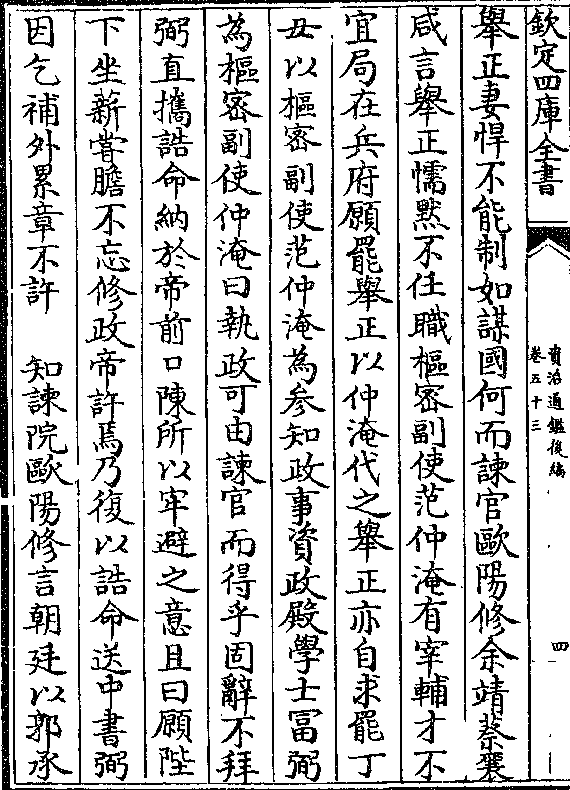 欽定四庫全書
資治通鑑後編
卷五十三
四
舉正妻悍不能制如謀國何而諫官歐陽修余靖蔡襄
咸言舉正懦黙不任職樞密副使范仲淹有宰輔才不
宜局在兵府願罷舉正以仲淹代之舉正亦自求罷丁
丑以樞密副使范仲淹為參知政事資政殿學士富弼
為樞密副使仲淹曰執政可由諫官而得乎固辭不拜
弼直攜誥命納於帝前口陳所以牢避之意且曰願陛
下坐薪嘗膽不忘修政帝許焉乃復以誥命送中書弼
因乞補外累章不許　知諫院歐陽修言朝廷以郭承